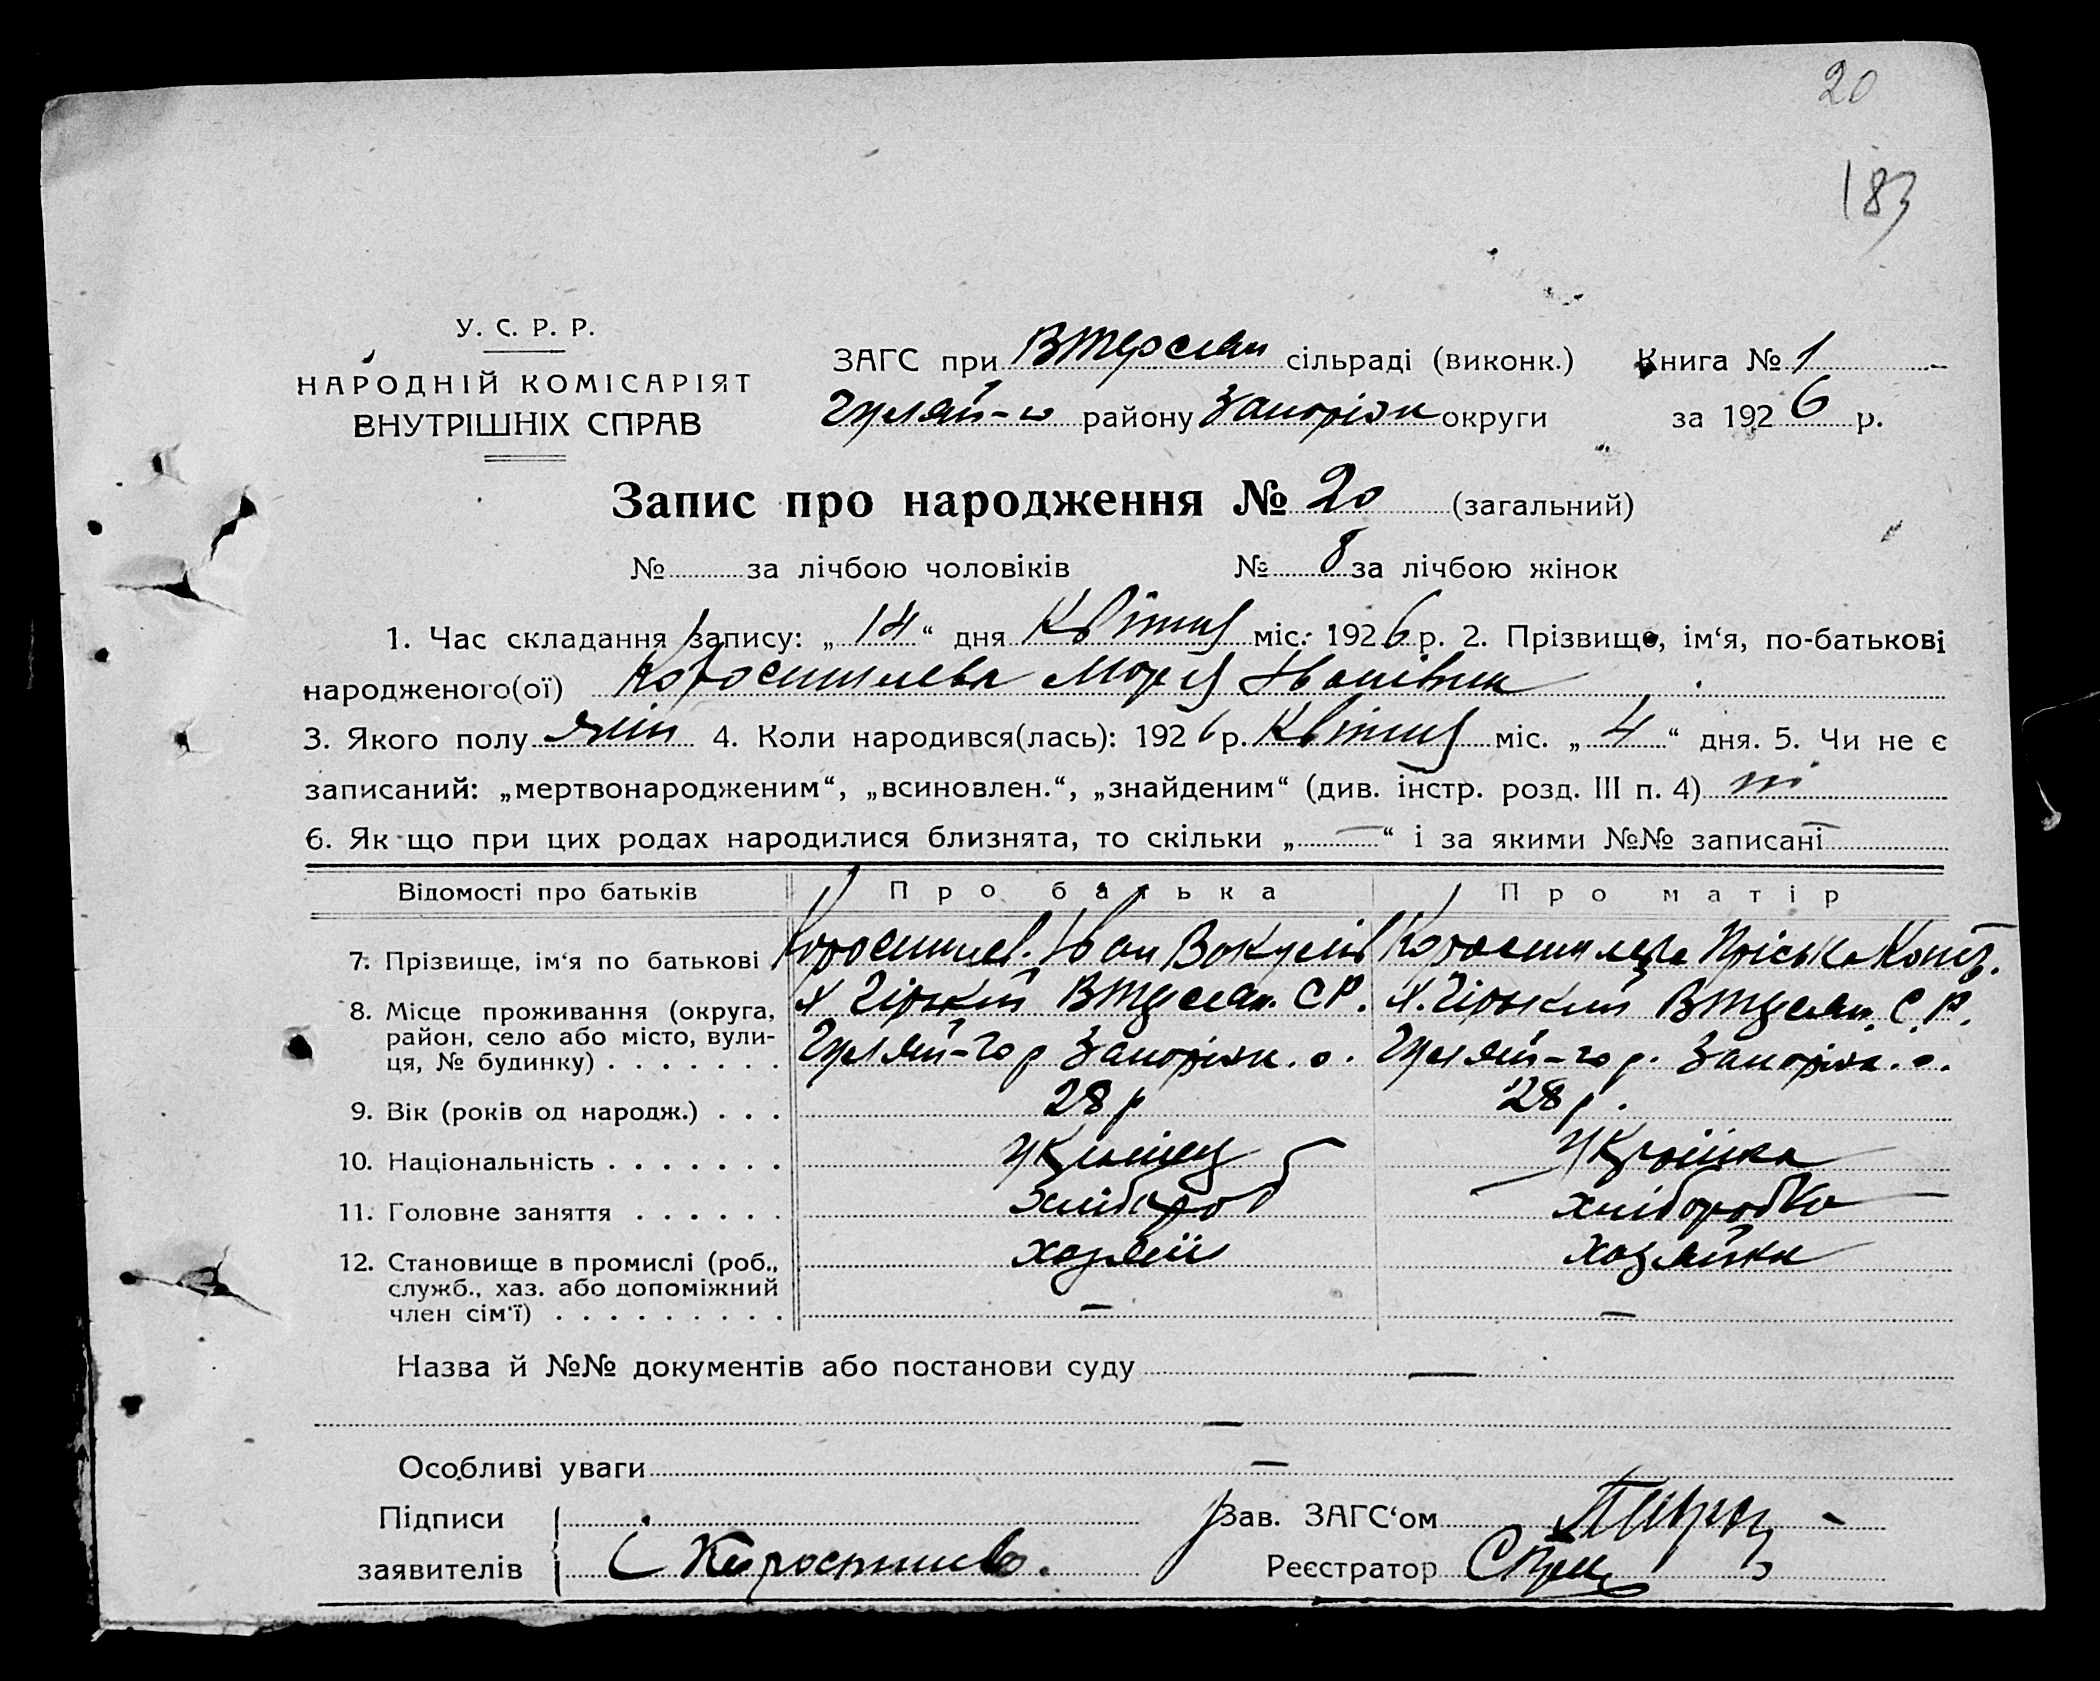 20
183
У. С. Р. Р.
НАРОДНІЙ КОМІСАРІЯТ
ВНУТРІШНІХ СПРАВ
ЗАГС при сільраді (виконк.) Книга № 1
Гуляй-го району Запоріж округи за 1926 р.
Запис про народження № 20 (загальний)
№ за лічбою чоловіків № 8 за лічбою жінок
1. Час складання запису: „14“ дня Квітня міс. 1926 р. 2. Прізвище, ім‘я, по-батькові
народженого(ої) Коростилева Марія Іванівна
3. Якого полу жін 4. Коли народився(лась): 1926 р. Квітня міс. „4“ дня. 5. Чи не є
записаний: „мертвонародженим“, „всиновлен.“, „знайденим“ (див. інстр. розд. III п. 4) ні
6. Як що при цих родах народилися близнята, то скільки „—“ і за якими №№ записані —
Відомості про батьків Про батька Про матір
7. Прізвище, ім‘я по батькові Коростилев. Іван Вакулів Коростилева Пріська
8. Місце проживання (округа, х Гіркий С.Р. х. Гіркий С.Р.
район, село або місто, вули-
ця, № будинку) . . . . . . . Гуляй-го р Запоріж. о. Гуляй-го р. Запоріж. о.
9. Вік (років од народж.) . . . 28 р 28 р.
10. Національність . . . . . . . Українец Українка
11. Головне заняття . . . . . . хлібороб хліборобка
12. Становище в промислі (роб., хазяїн хазяйка
служб., хаз. або допоміжний
член сім‘ї) . . . . . . . . . — —
Назва й №№ документів або постанови суду —
—
Особливі уваги —
Підписи Зав. ЗАГС‘ом
заявителів Реєстратор